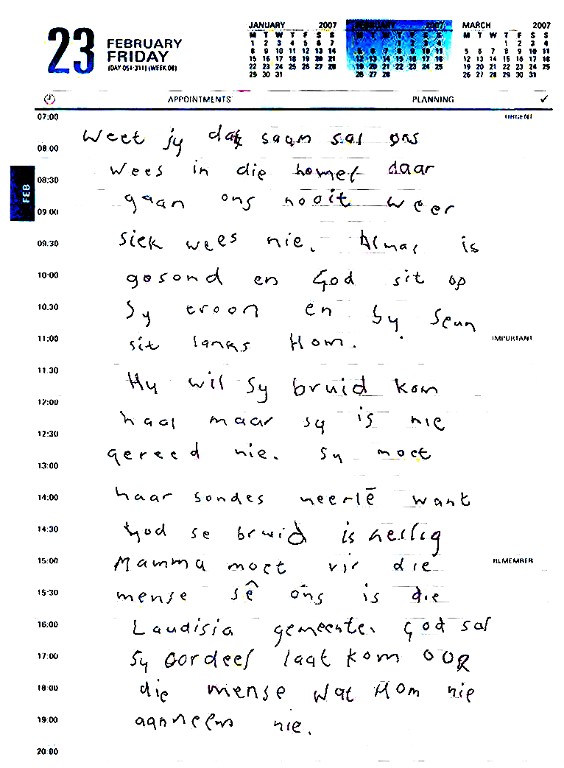 23 FEBRUARY
FRIDAY
(DAY 054-311) (WEEK 08)
JANUARY 2007
M T W T F S S
1 2 3 4 5 6 7
8 9 10 11 12 13 14
15 16 17 18 19 20 21
22 23 24 25 26 27 28
29 30 31
FEBRUARY 2007
MARCH 2007
M T W T F S S
1 2 3 4
5 6 7 8 9 10 11
12 13 14 15 16 17 18
19 20 21 22 23 24 25
26 27 28 29 30 31
APPOINTMENTS PLANNING
07:00 URGENT
weet jy dat saam sal ons
08:00
wees in die hemel daar
08:30
FEB
gaan ons nooit weer
09:00
siek wees nie. Almal is
09:30
gesond en God sit op
10:00
Sy troon en Sy Seun
10:30
sit langs Hom.
11:00 IMPORTANT
11:30
Hy wil Sy bruid kom
12:00
haal maar sy is nie
12:30
gereed nie. Sy moet
13:00
haar sondes neerlê want
14:00
God se bruid is heilig
14:30
Mamma moet vir die
15:00 REMEMBER
mense sê ons is die
15:30
Laudisia gemeente. God sal
16:00
Sy oordeel laat kom oor
17:00
die mense wat Hom nie
18:00
aanneem nie.
19:00
20:00